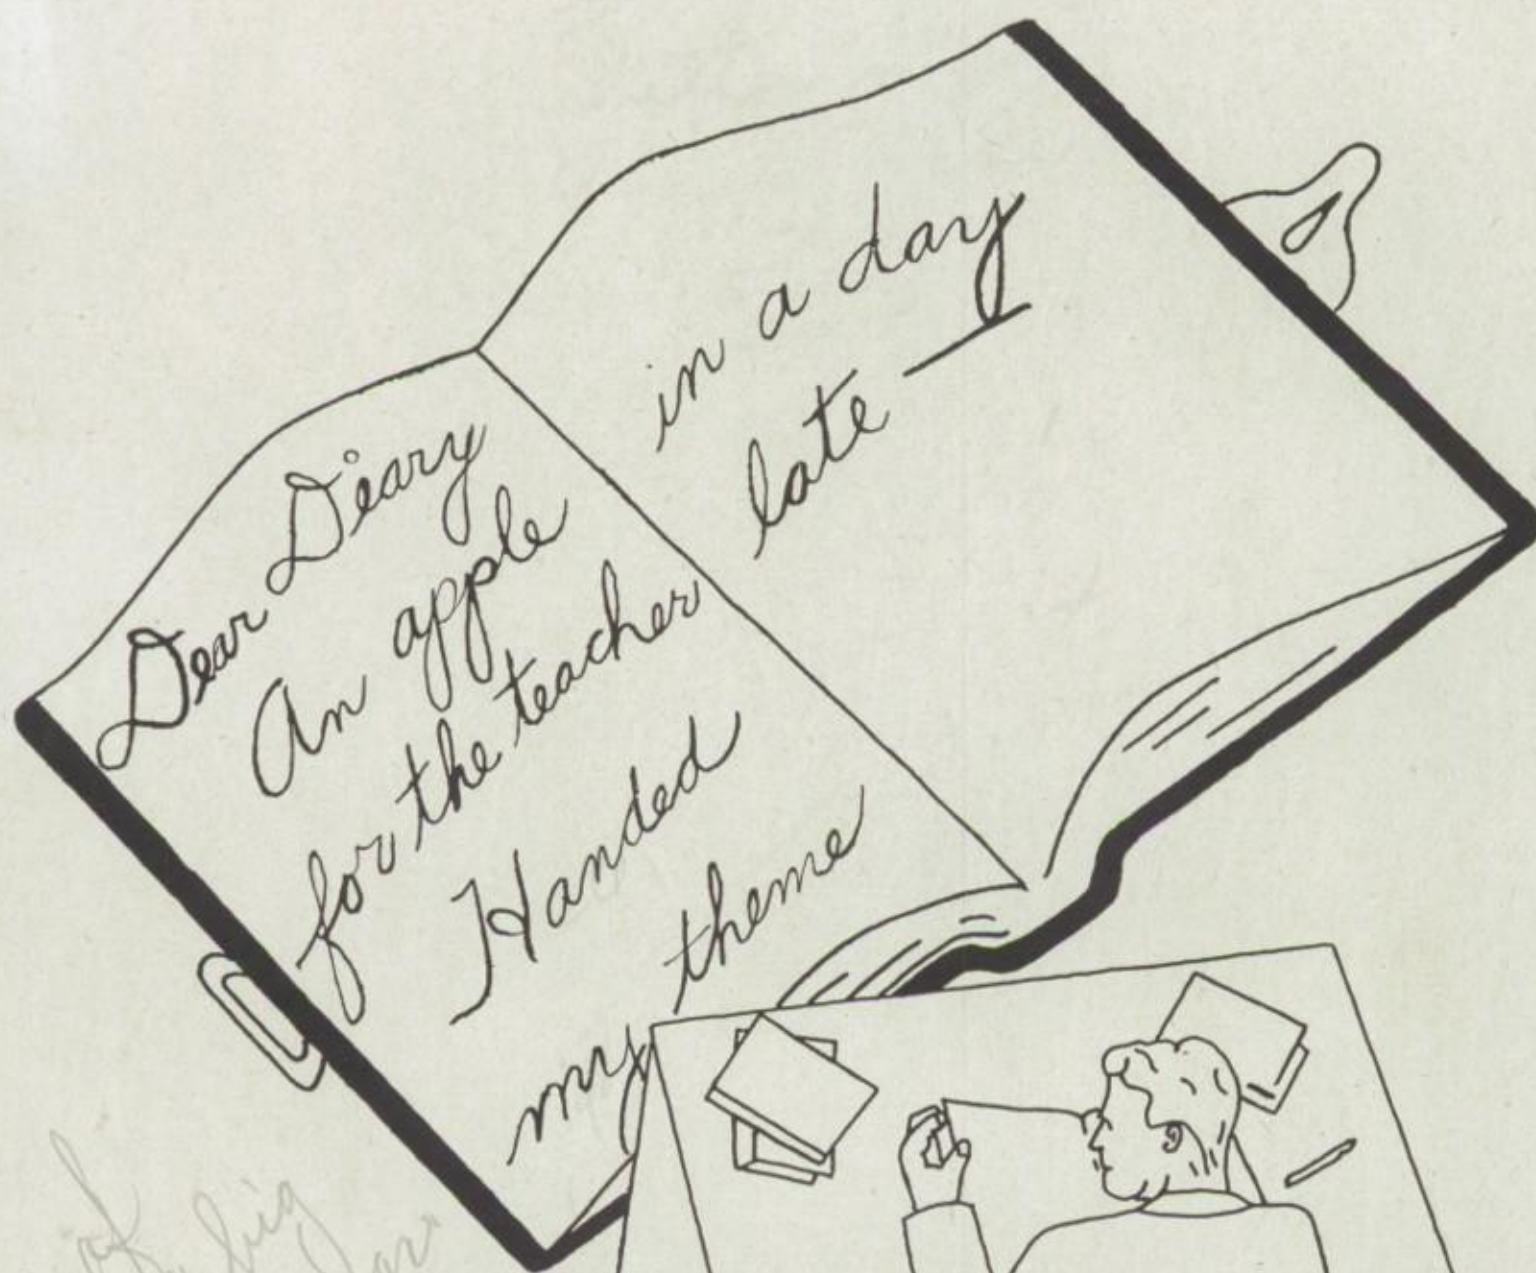 Dear Diary
An apple
for the teacher
Handed
my theme
in a day
late —
big